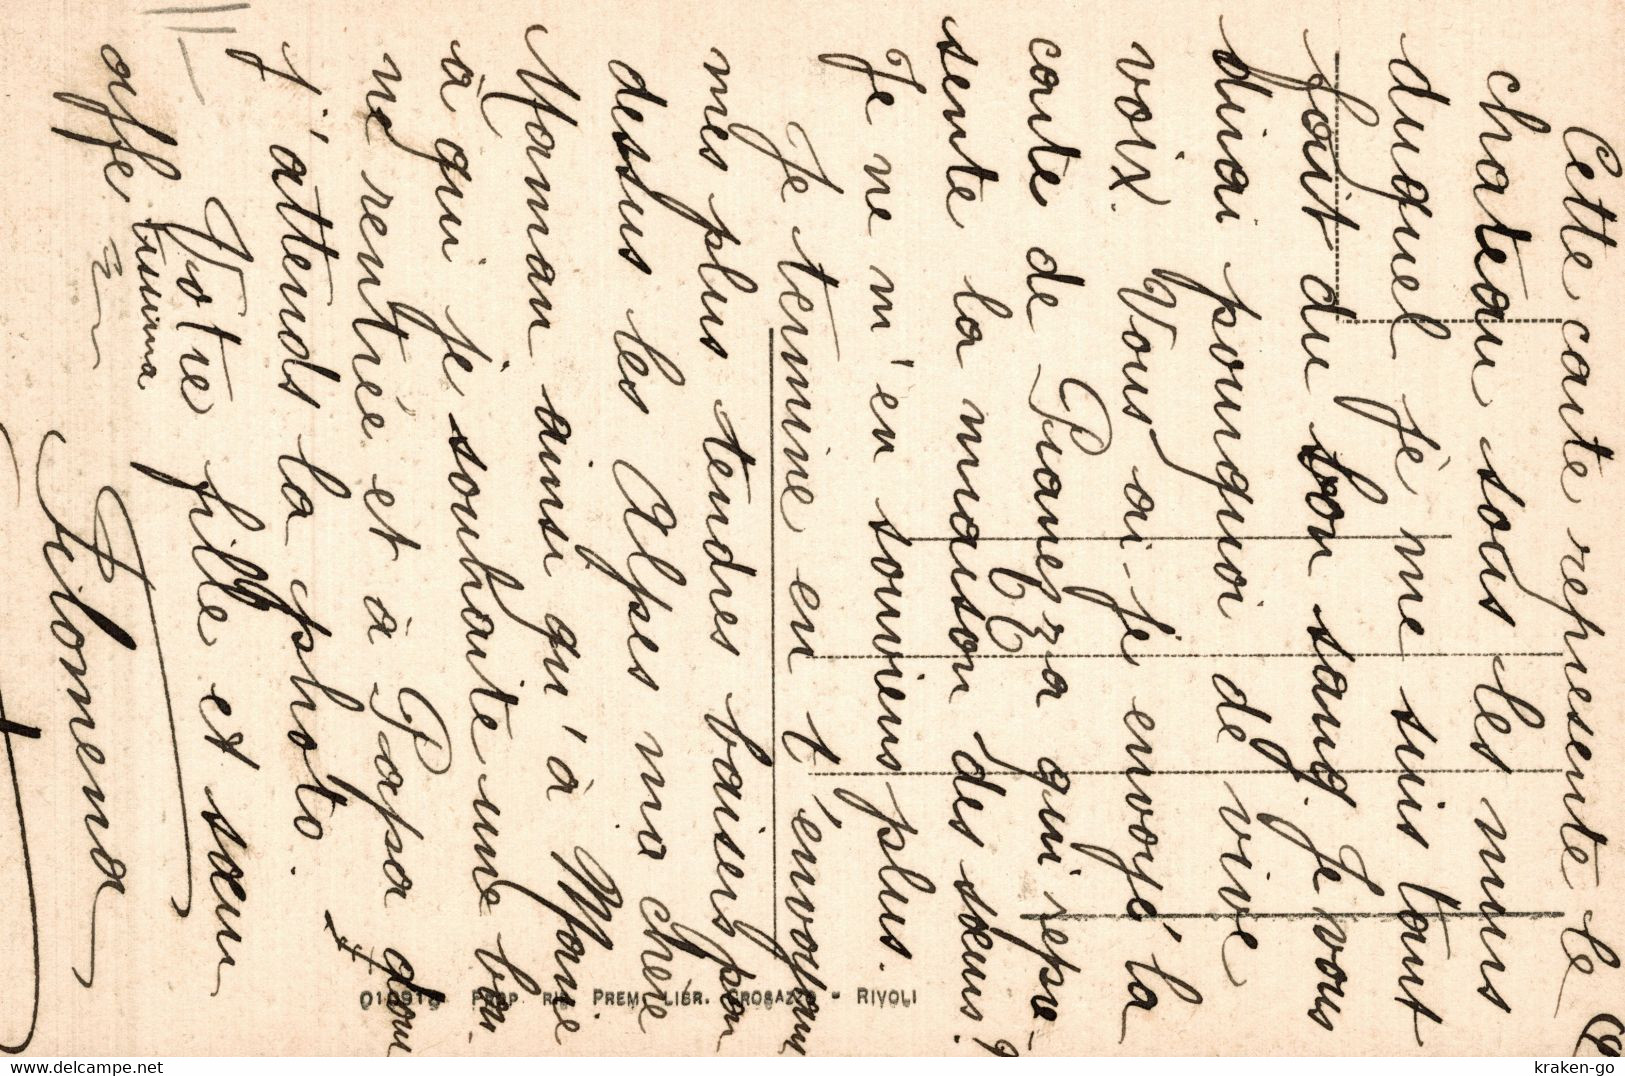 Cette carte represente le
chateau sous les murs
duquel je me suis tant
fait du bon sang. Je vous
dirai pourquoi de vive
voix. Vous ai-je envoyé la
carte de Pianezza qui repré-
sente la maison des sœurs?
Je ne m'en souviens plus.
Je termine en t'envoyant
mes plus tendres baisers par
dessus les Alpes ma chère
Maman ainsi qu'à Marie
à qui je souhaite une bon
ne rentrée et à Papa dont
j'attends la photo.
Votre fille et sœur
affe tissima
Filomena
010918 PROP. RIS. PREM. LIBR. GROSAZZO - RIVOLI
kraken-go